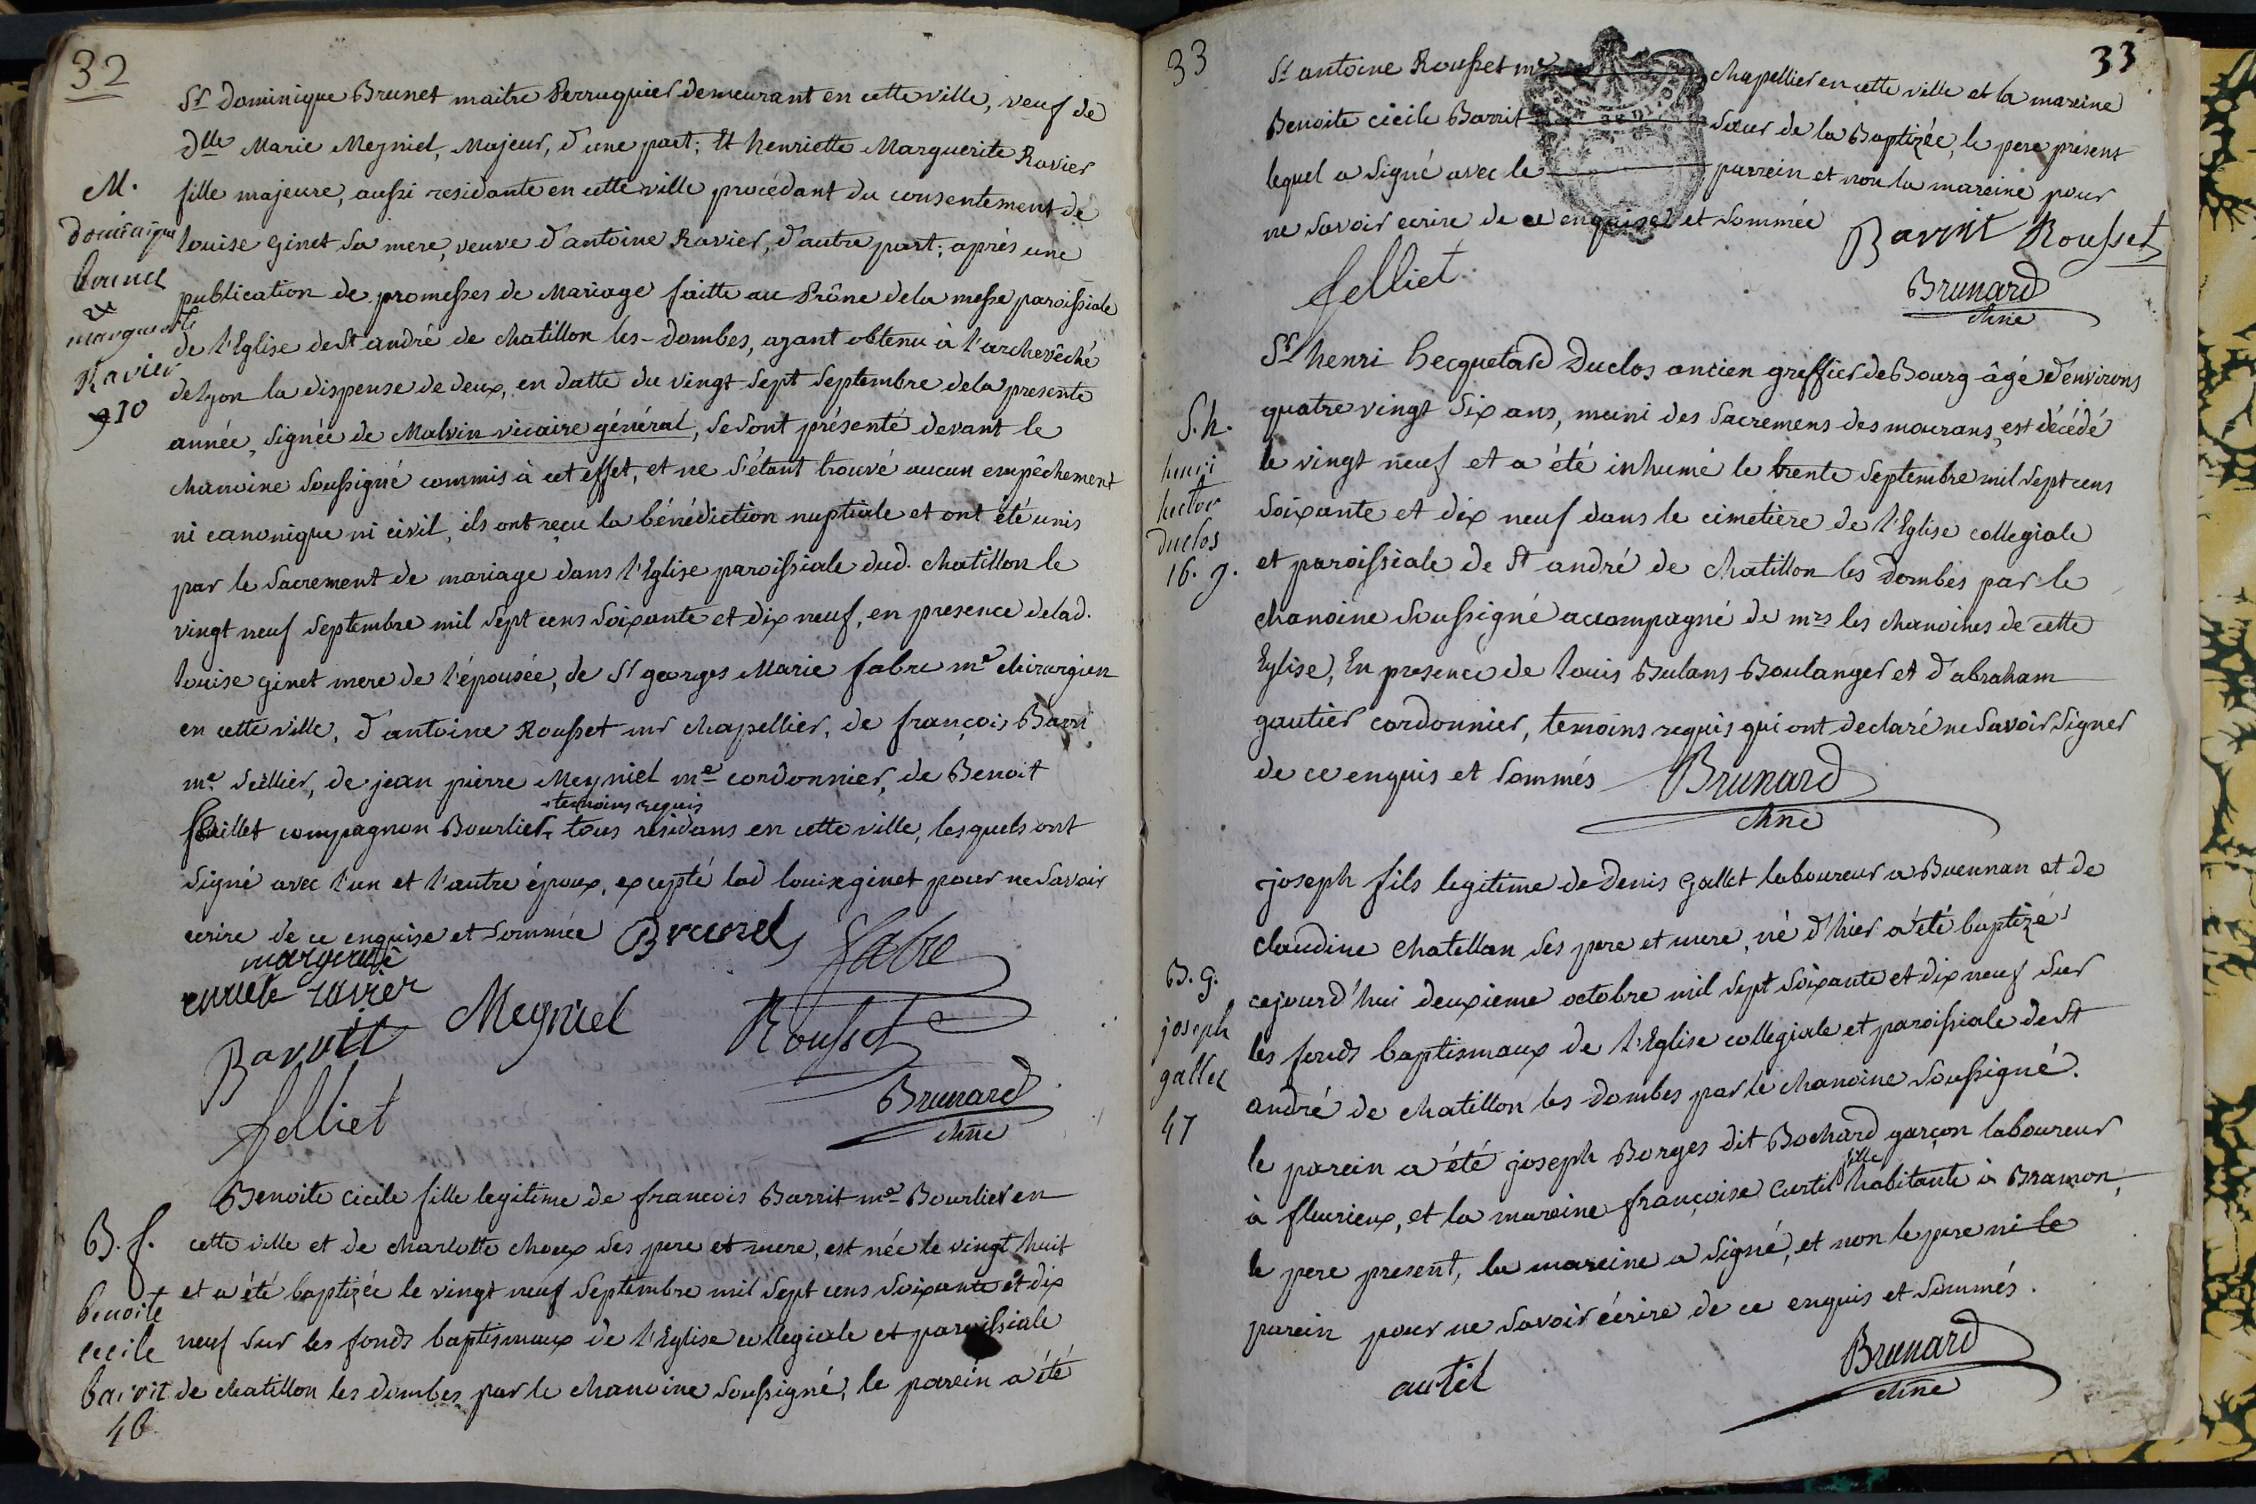 32
Sr Dominique Brunet maitre Perruquier demeurant en cette ville, veuf de
Dlle Marie Meyniel, Majeur, d'une part; Et henriette Marguerite Ravier
fille majeure, aussi residante en cette ville procédant du consentement de
louise ginet sa mere, veuve d'antoine Ravier, d'autre part; après une
publication de promesses de Mariage faitte au Prône dela messe paroissiale
de l'Eglise de St andré de chatillon les-dombes, ayant obtenu à l'archevêché
de lyon la dispense de deux, en datte du vingt sept septembre dela presente
année, signée de Malvin vicaire général, se sont présenté devant le
chanoine soussigné commis à cet effet, et ne s'étant trouvé aucun empêchement
ni canonique ni civil, ils ont reçu la bénédiction nuptiale et ont été unis
par le sacrement de mariage dans l'Eglise paroissiale dud. chatillon le
vingt neuf septembre mil sept cens soixante et dix neuf, en presence delad.
louise ginet mere de l'épousée, de Sr georges Marie fabre me chirurgien
en cette ville, d'antoine Rousset mr chapellier, de françois Barri
me sellier, de jean pierre Meyniel me cordonnier, de Benoit
compagnon Bourlier, tous résidans en cette ville, lesquels ont
temoins requis
signé avec l'un et l'autre époux, excepté lad louise ginet pour ne savoir
ecrire de ce enquise et sommée Brunet fabre
margerite
ravier
Barrit Meyniel Rousset
felliet
Brunard
chne
M.
dominique
brunet
et
marguerite
Ravier
10
Benoite cicile fille legitime de francois Barrit me Bourlier en
cette ville et de charlotte choux ses pere et mere, est née le vingt huit
et a été baptizée le vingt neuf septembre mil sept cens soixante et dix
neuf sur les fonds baptismaux de l'Eglise collegiale et paroissiale
de chatillon les dombes par le chanoine soussigné, le parein a été
B. f.
benoite
cecile
barrit
46
33
33
Sr antoine Rousset me chapellier en cette ville et la mareine
Benoite cicile Barrit sœur de la Baptizée, le pere present
lequel a signé avec le parrein et non la mareine pour
ne savoir ecrire de ce enquise et sommée Barrit Rousset
felliet
Brunard
chne
Sr henri hecquetard Duclos ancien greffier de Bourg âgé d'environs
quatre vingt six ans, muni des sacremens des mourans, est décédé
le vingt neuf et a été inhumé le trente septembre mil sept cens
soixante et dix neuf dans le cimetière de l'Eglise collegiale
et paroissiale de St andré de chatillon les Dombes par le
chanoine soussigné accompagné de mrs les chanoines de cette
Eglise, En presence de louis Bulans Boulanger et d'abraham
gautier cordonnier, temoins requis qui ont declaré ne savoir signer
de ce enquis et sommés Brunard
chne
S. h.
henri
hector
duclos
16. g.
joseph fils legitime de Denis gallet laboureur a Buennan et de
claudine chatellan ses pere et mere, né d'hier a été baptizé
cejourd'hui deuxieme octobre mil sept soixante et dix neuf sur
les fonds baptismaux de l'Eglise collegiale et paroissiale de St
andré de chatillon les dombes par le chanoine soussigné.
le parein a été joseph Borges dit Bochard garçon laboureur
à fleurieux, et la mareine françoise Curtil fille habitante à Bramon,
le pere present, la mareine a signé, et non le pere ni le
parein pour ne savoir écrire de ce enquis et sommés.
autil
Brunard
chne
B. g.
joseph
gallet
47